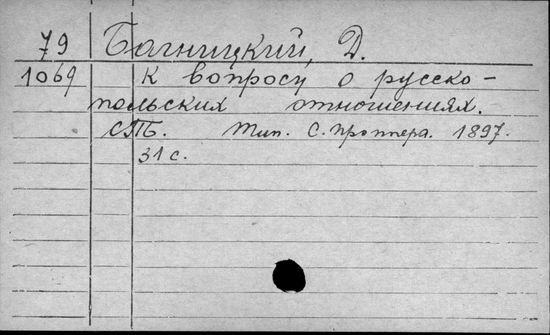 79 Багницкий, Д.
1069 К вопросу о русско-
польских отношениях.
СПб. Тип. С. Проппера. 1897.
31 с.